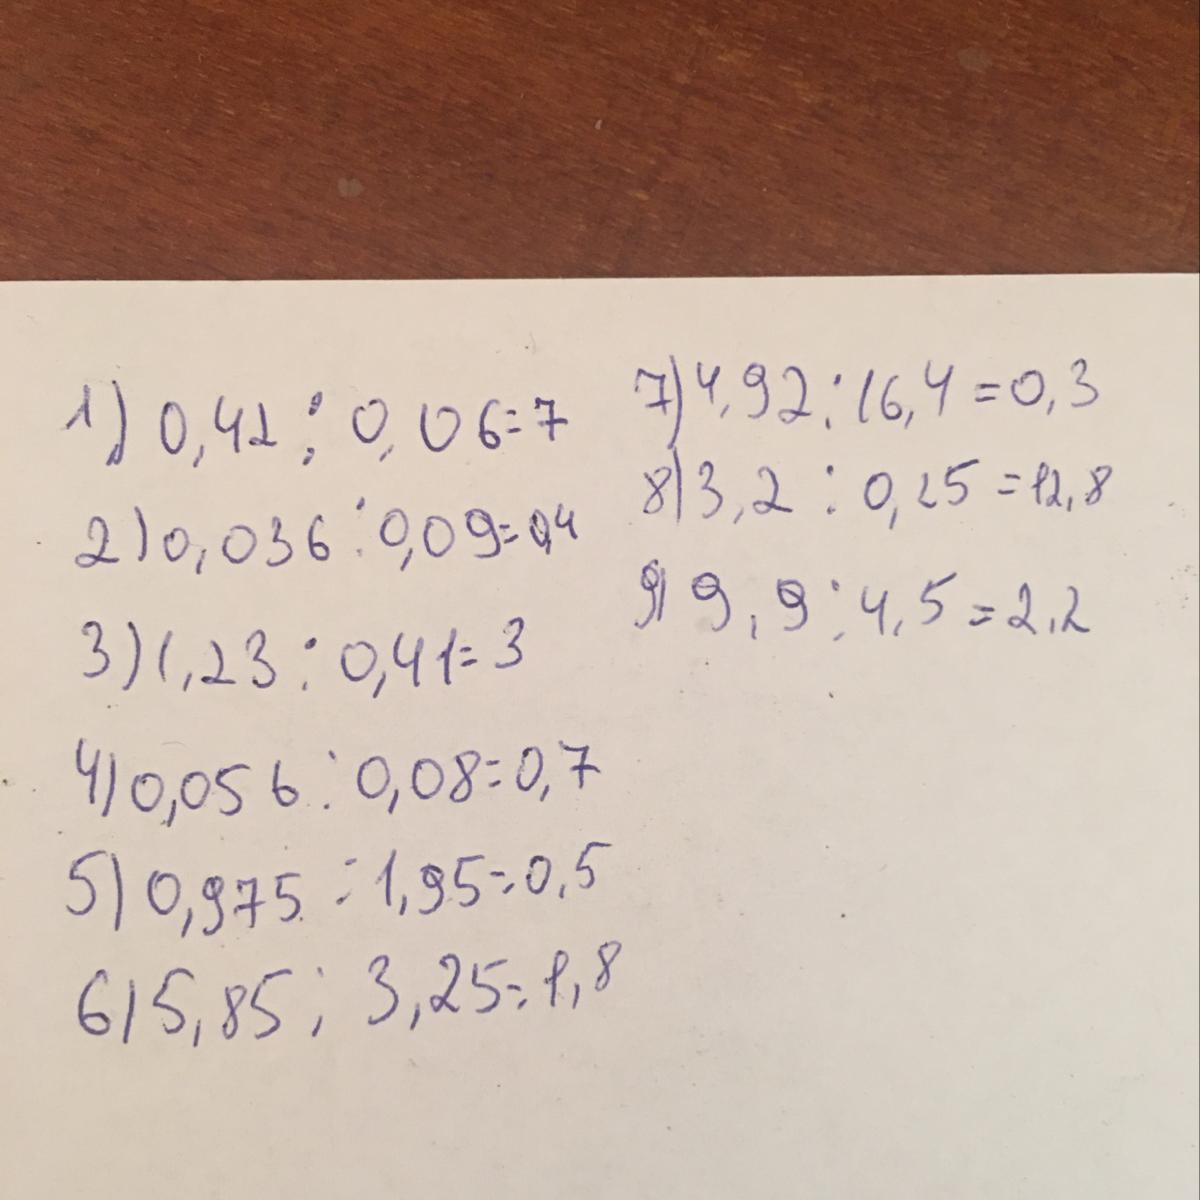 1) 0,42 : 0,06=7
2) 0,036 : 0,09=0,4
3) 1,23 : 0,41=3
4) 0,056 : 0,08=0,7
5) 0,975 : 1,95=0,5
6) 5,85 : 3,25=1,8
7) 4,92 : 16,4=0,3
8) 3,2 : 0,25=12,8
9) 9,9 : 4,5=2,2